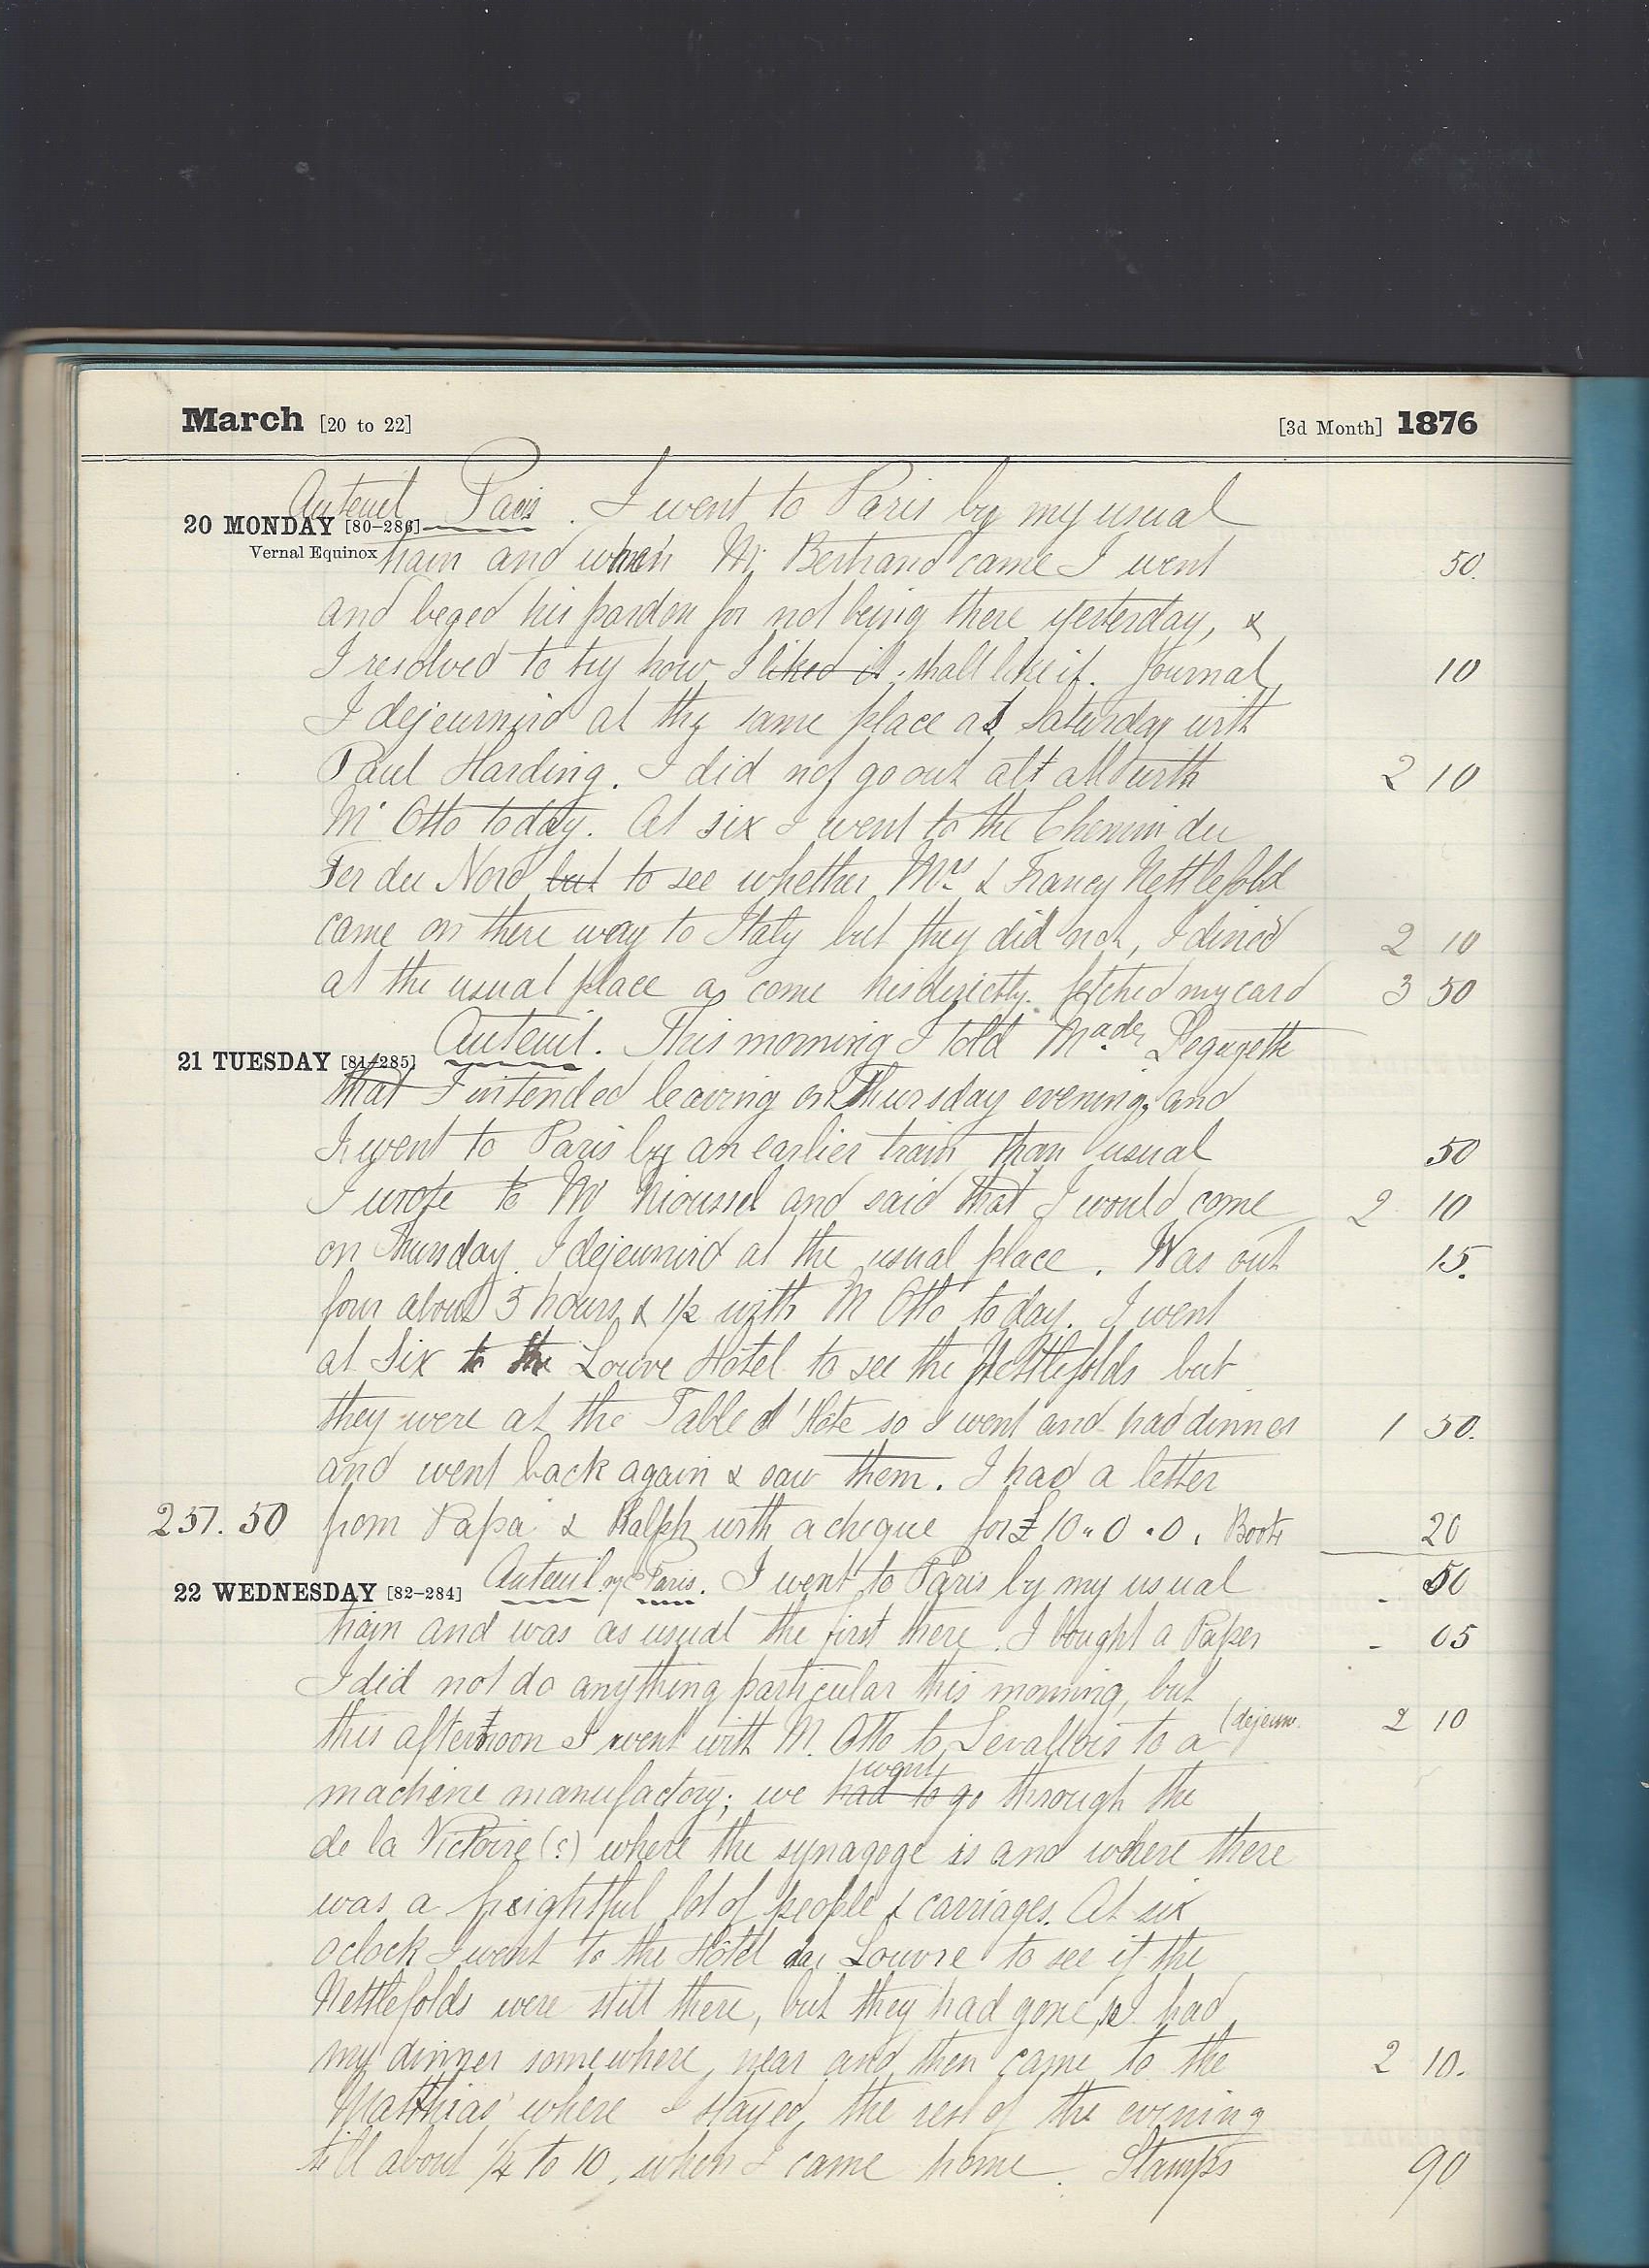 March [20 to 22] [3d Month] 1876
Auteuil Paris. I went to Paris by my usual
20 MONDAY [80-286]
Vernal Equinox
train and when Mr. Bertrand came I went 50.
and beged his pardon for not being there yesterday, &
I resolved to try how I liked it shall like it. Journal 10
I dejeunéd at the same place as Saturday with
Paul Harding. I did not go out at all with 2 10
Mr Otto today. At six I went to the Chemin du
Fer du Nord but to see whether Mrs & Francy Nettlefold
came on there way to Italy but they did not, I dined 2 10
at the usual place come directly. fetched my card 3 50
21 TUESDAY [81-285] Auteuil. This morning I told Made
that I intended leaving on Thursday evening, and
I went to Paris by an earlier train than usual 50
I wrote to Mr and said that I would come 2 10
on Thursday. I dejeunéd at the usual place. Was out 15.
for about 3 hours & 1/2 with M Otto today. I went
at Six to the Louvre Hôtel to see the Nettlefolds but
they were at the Table d'Hôte so I went and had dinner 1 50.
and went back again & saw them. I had a letter
251. 50 from Papa & Ralph with a cheque for £10.0.0. Boots 20
22 WEDNESDAY [82-284] Auteuil Paris. I went to Paris by my usual - 50
train and was as usual the first there. I bought a Paper - 05
I did not do anything particular this morning, but
this afternoon I went with M. Otto to Levallois to a (dejeun. 2 10
machine manufactory; we had to went go through the
de la Victoire (?) where the synagoge is and where there
was a freightful lot of people & carriages. At six
oclock I went to the Hôtel du Louvre to see if the
Nettlefolds were still there, but they had gone, I had
my dinner somewhere near and then came to the 2 10.
Matthias' where I stayed the rest of the evening
till about 1/4 to 10, when I came home. Stamps 90